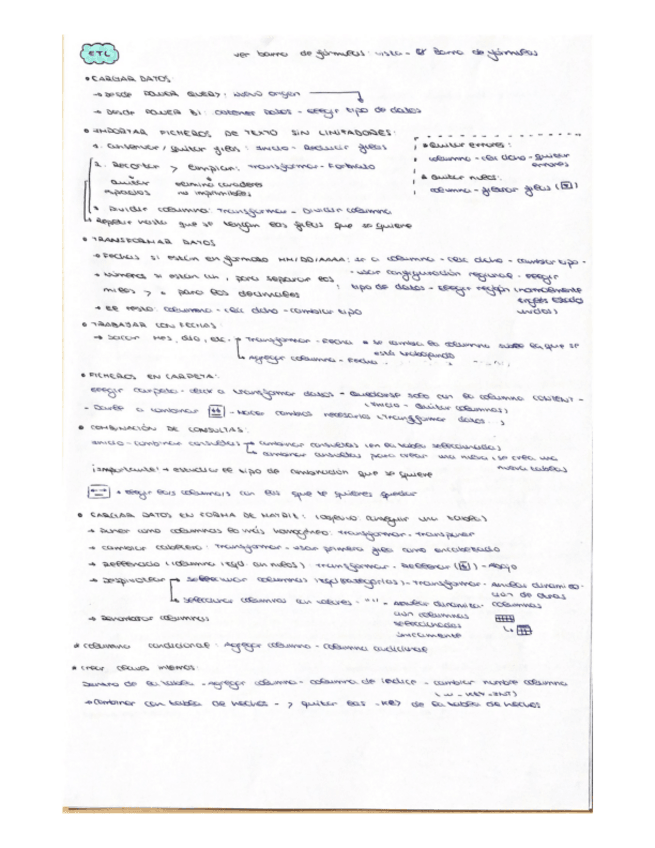 ETL
ver barra de fórmulas: vista - Barra de fórmulas
• CARGAR DATOS:
→ DESDE POWER QUERY: NUEVO origen
→ DESDE POWER BI: OBTENER DATOS - elegir tipo de datos
• IMPORTAR FICHEROS DE TEXTO SIN LIMITADORES:
1. Conservar / quitar filas: Inicio - Reducir filas
2. Recortar > limpiar: Transformar - Formato
quitar espacios
elimina caracteres no imprimibles
• Dividir columna: Transformar - Dividir columna
↳ Repetir hasta que se tengan las filas que se quiere
• Quitar errores:
columna - clic dcho - quitar errores
• Quitar nulos:
columna - filtrar filas
• TRANSFORMAR DATOS
→ Fechas si están en formato MM/DD/AAAA: ir a columna - clic dcho - cambiar tipo -
- usar configuración regional - elegir
tipo de datos - elegir región (normalmente
inglés Estados Unidos)
→ Números si están un , para separar los
miles y . para los decimales
→ El resto: columna - clic dcho - cambiar tipo
• TRABAJAR CON FECHAS:
→ Sacar mes, día, etc. → Transformar - Fecha • se cambia la columna sobre la que se
está trabajando
↳ Agregar columna - Fecha
• FICHEROS EN CARPETA:
elegir carpeta - darle a transformar datos - quedarse solo con la columna CONTENT -
(Inicio - Quitar columnas)
- Darle a combinar - Hacer cambios necesarios (Transformar datos...)
• COMBINACIÓN DE CONSULTAS:
Inicio - combinar consultas → combinar consultas (en la tabla seleccionada)
↳ combinar consultas para crear una nueva (se crea una
nueva tabla)
¡importante! → estudiar el tipo de combinación que se quiere
→ elegir las columnas con las que te quieres quedar
• CARGAR DATOS EN FORMA DE MATRIZ: (objetivo: conseguir una tabla)
→ Poner como columnas lo más homogéneo: Transformar - transponer
→ cambiar cabecera: Transformar - usar primera fila como encabezado
→ Rellenar - Abajo
→ Despivotear → seleccionar columnas - Transformar - Anular dinamiza-
ción de otras
columnas
↳ seleccionar columnas con valores - " " - Anular dinamiza-
ción columnas
seleccionadas
únicamente
→ Renombrar columnas
• columna condicional: Agregar columna - columna condicional
• Crear claves internas:
Dentro de la tabla - Agregar columna - columna de índice - cambiar nombre columna
→ Combinar con tabla de hechos - > quitar las de la tabla de hechos